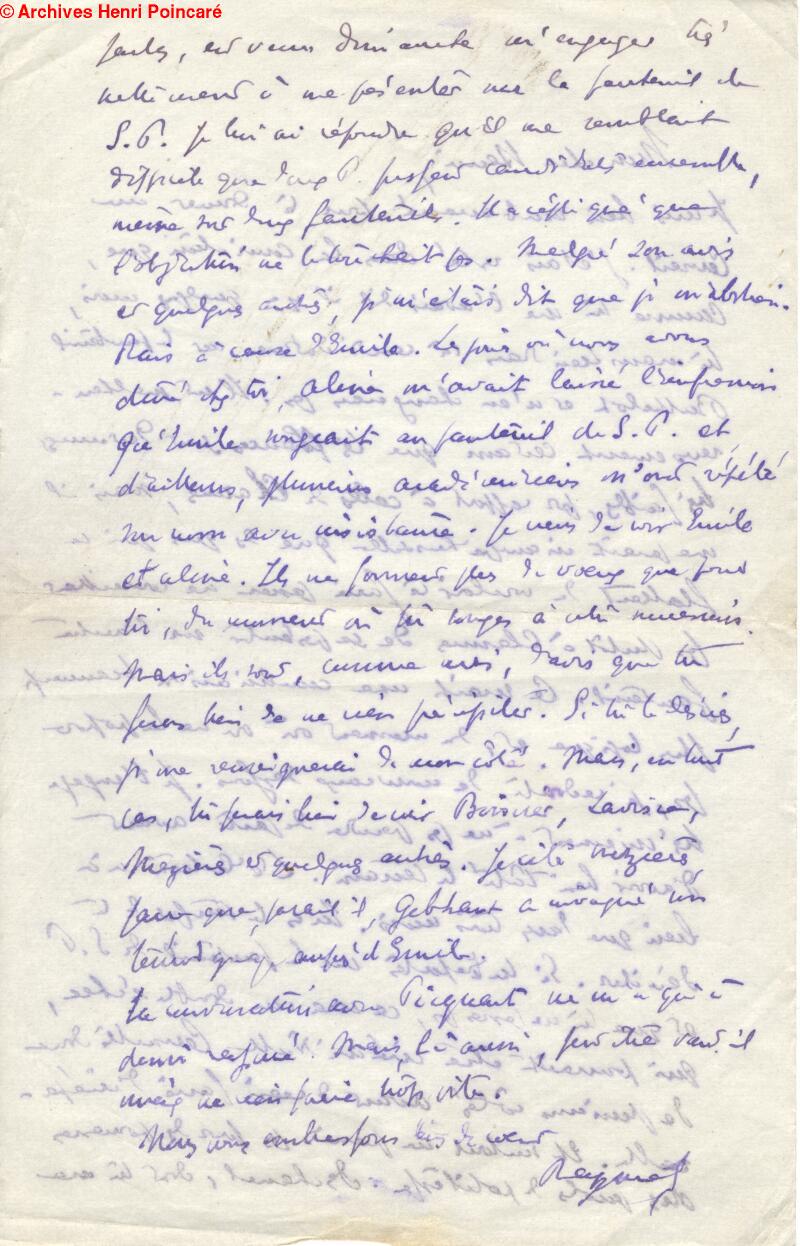 © Archives Henri Poincaré
est venu dimanche m'engager très
nettement à me présenter sur le fauteuil de
S. P. Je lui ai répondu qu'il me semblait
difficile que deux P. fussent candidats ensemble,
même sur deux fauteuils. Il a répliqué que
l'objection ne le touchait pas. Malgré son avis
et quelques autres, je m'étais dit que je m'abstien-
drais à cause d'Emile. Le jour où nous avons
dîné chez toi, Aline m'avait laissé l'impression
qu'Emile songeait au fauteuil de S. P. et,
d'ailleurs, plusieurs académiciens m'ont répété
son nom avec insistance. Je viens de voir Emile
et Aline. Ils ne forment plus de vœux que pour
toi, du moment où tu songes à cette succession.
Mais ils sont, comme moi, d'avis que tu
feras bien de ne rien précipiter. Si tu le désires,
je me renseignerai de mon côté. Mais, en tout
cas, tu ferais bien de voir Boissier, Lavisse,
Mezières et quelques autres. Je cite Mezières
parce que, paraît-il, Gebhart a invoqué son
témoignage auprès d'Emile.
Ta conversation avec Picquart ne m'a qu'à
demi rassuré. Mais, là aussi, peut-être vaut-il
mieux ne rien faire trop vite.
Nous vous embrassons bien de cœur
Raymond